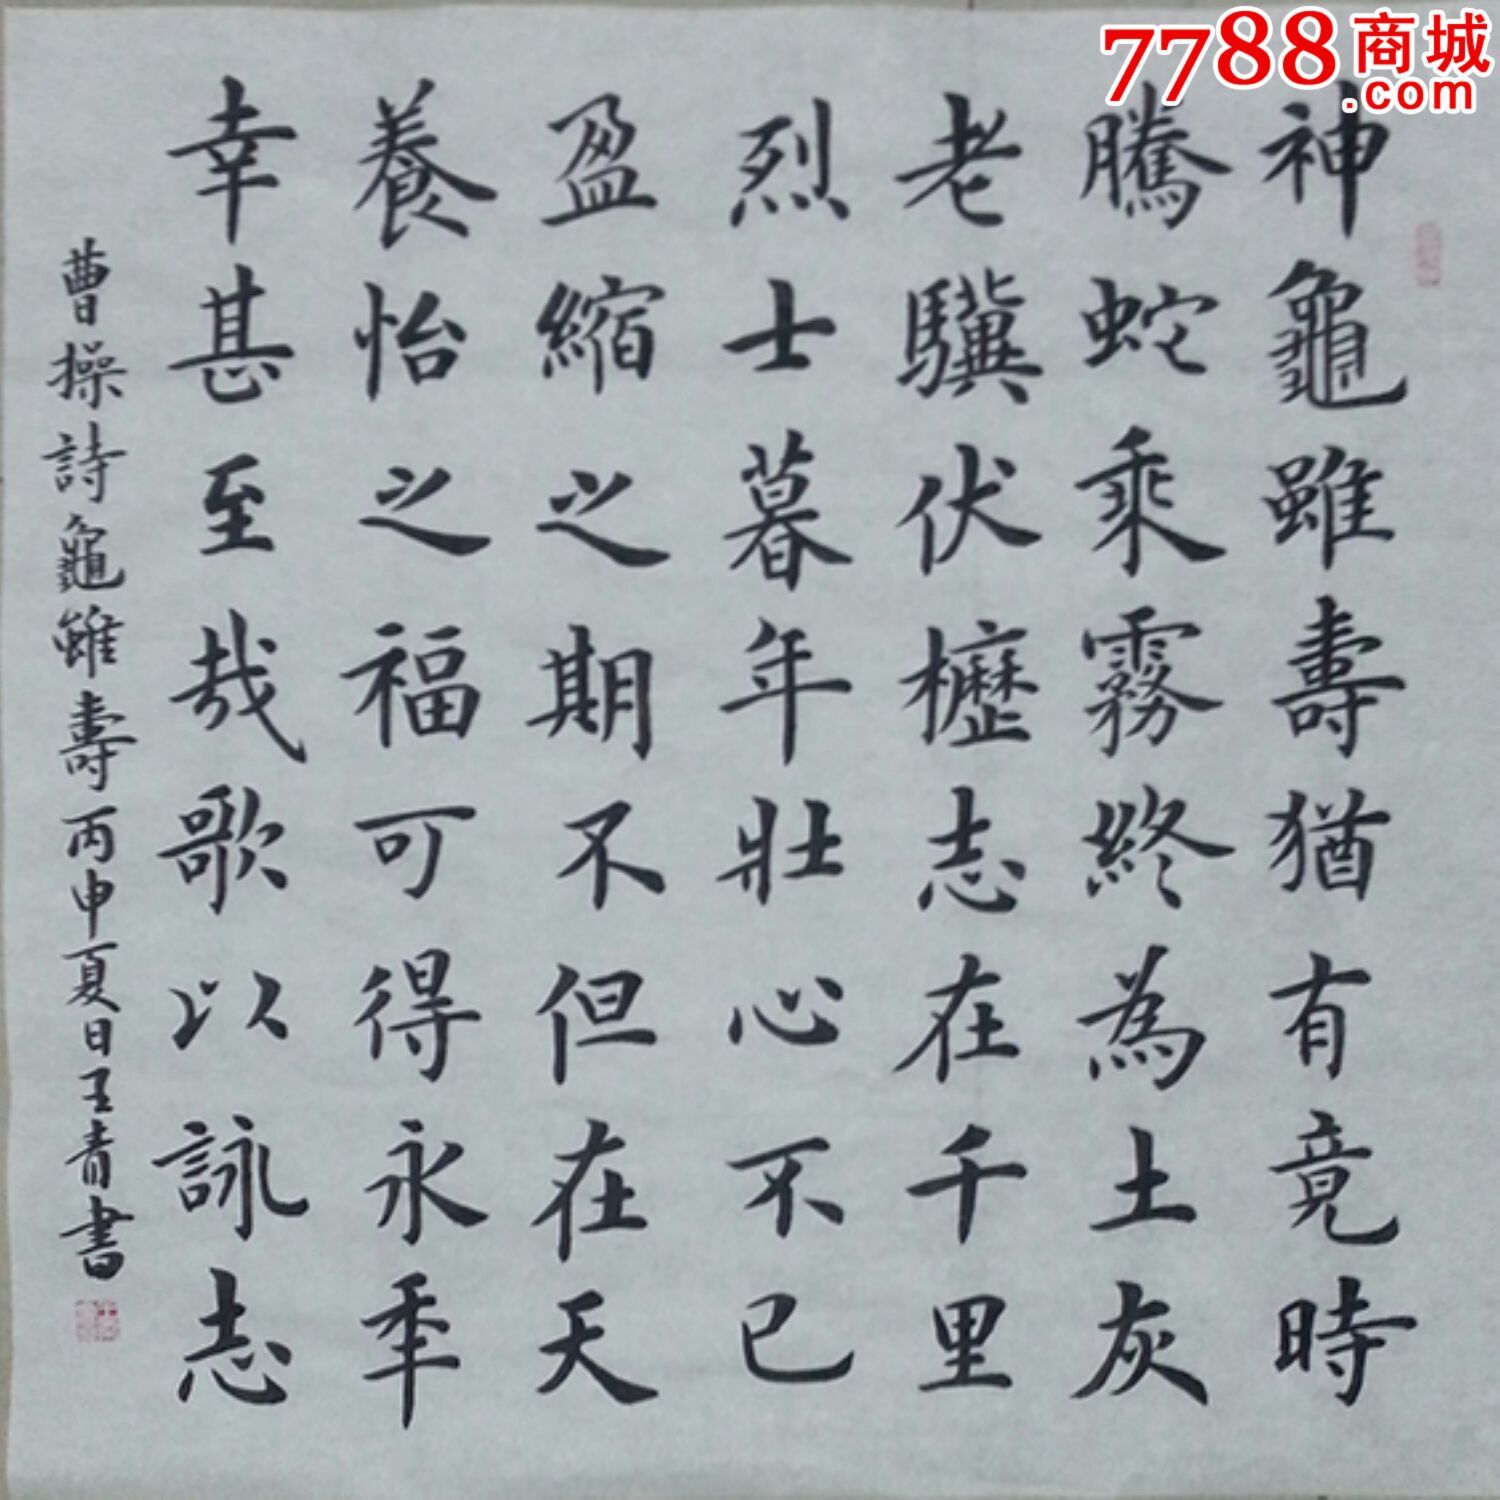 神龜雖壽猶有竟時
騰蛇乘霧終為土灰
老驥伏櫪志在千里
烈士暮年壯心不已
盈縮之期不但在天
養怡之福可得永年
幸甚至哉歌以詠志
曹操詩龜雖壽丙申夏日王青書
7788商城
.com